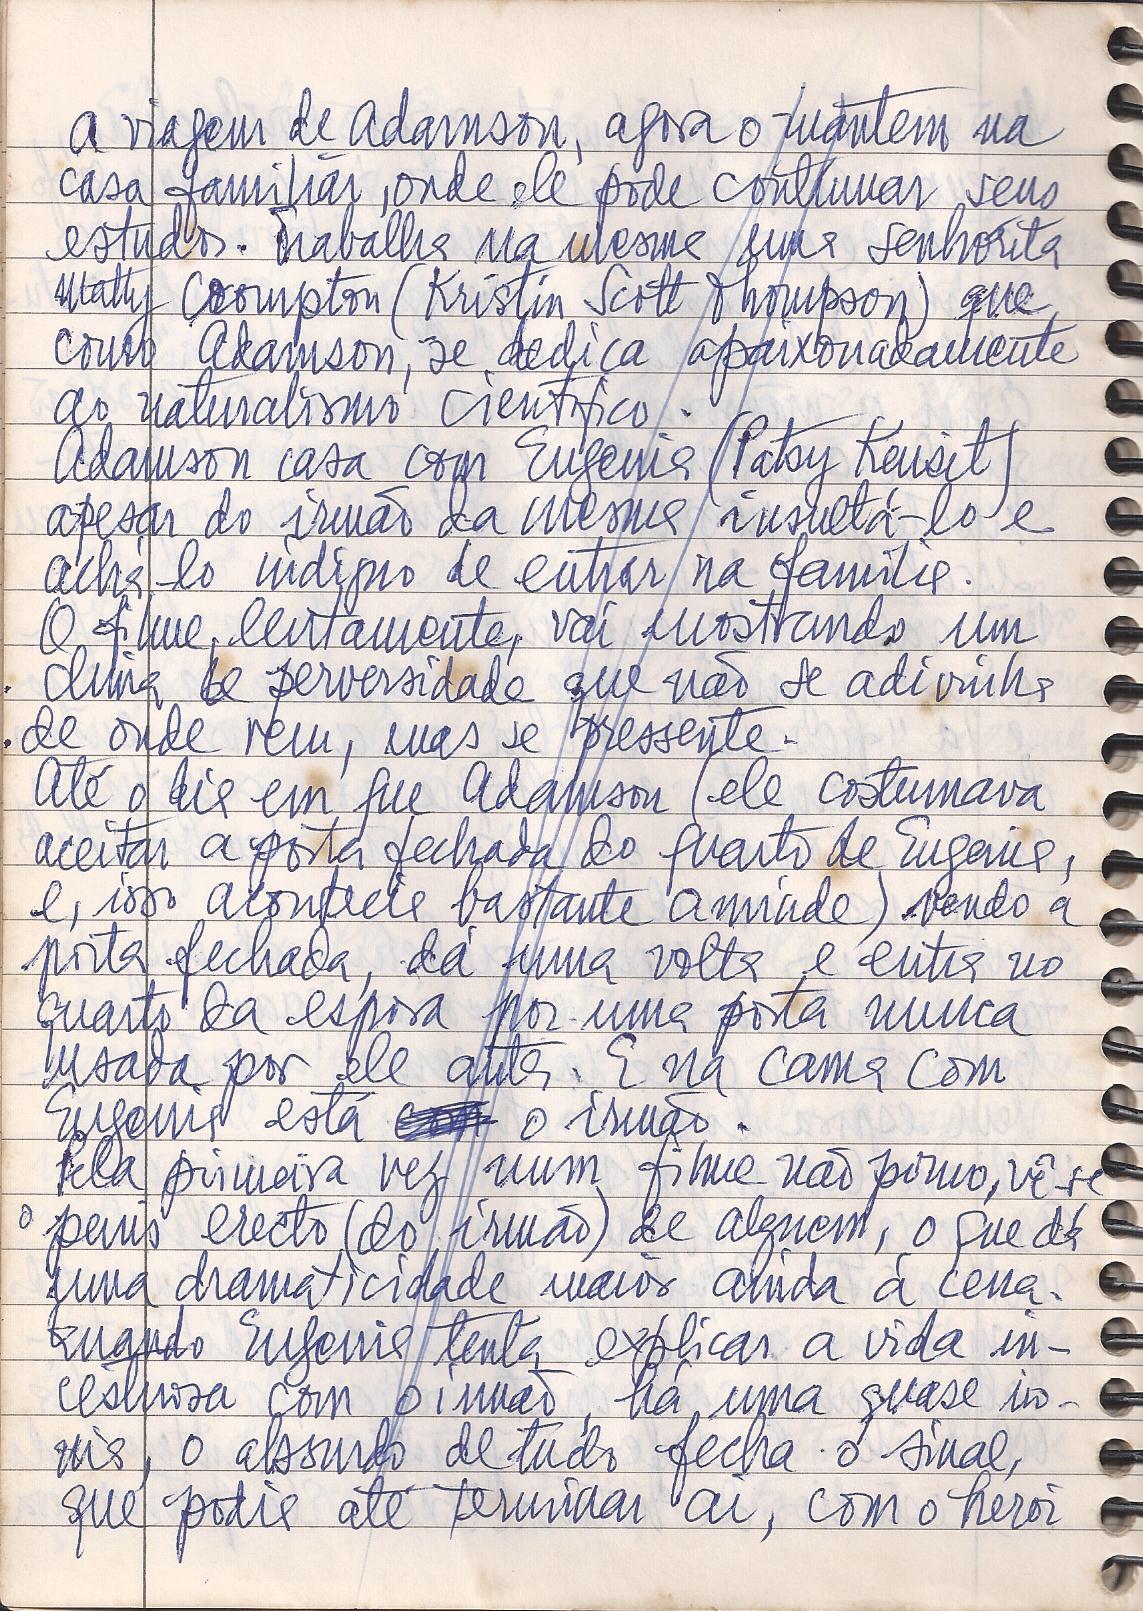 a viagem de Adamson, agora o mantem na
casa familiar, onde ele pode continuar seus
estudos. Trabalha na mesma uma senhorita
Matty Crompton (Kristin Scott Thompson) que,
como Adamson, se dedica apaixonadamente
ao naturalismo científico.
Adamson casa com Eugenia (Patsy Kensit)
apesar do irmão da mesma insultá-lo e
achá-lo indigno de entrar na família.
O filme, lentamente, vai mostrando um
clima de perversidade que não se adivinha
de onde vem, mas se pressente.
Até o dia em que Adamson (ele costumava
aceitar a porta fechada do quarto de Eugenia,
e, isso acontecia bastante amiúde) vendo a
porta fechada, dá uma volta e entra no
quarto da esposa por uma porta nunca
usada por ele antes. E na cama com
Eugenia está o irmão.
Pela primeira vez num filme não porno, vê-se
o penis erecto (do irmão) de alguem, o que dá
uma dramaticidade maior ainda á cena.
Quando Eugenia tenta explicar a vida in-
cestuosa com o irmão, há uma quase iro-
nia, o absurdo de tudo fecha o sinal,
que podia até terminar aí, com o heroi